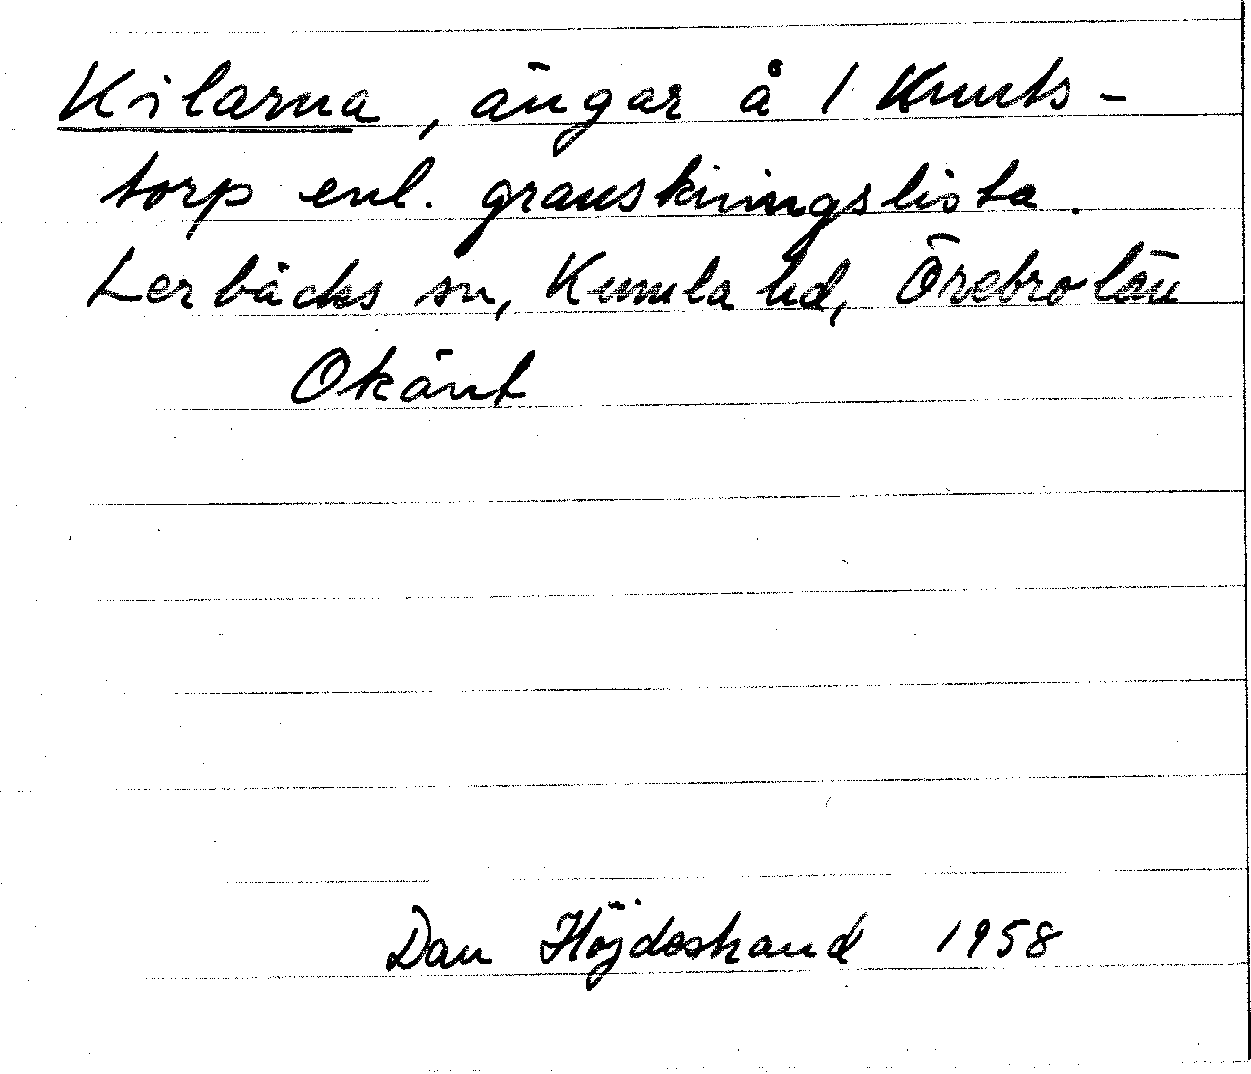 Kilarna, ängar å 1 Knuts-
torp enl. granskningslista.
Lerbäcks sn, Kumla hd, Örebro län
Okänt
Dan Höjdestrand 1958